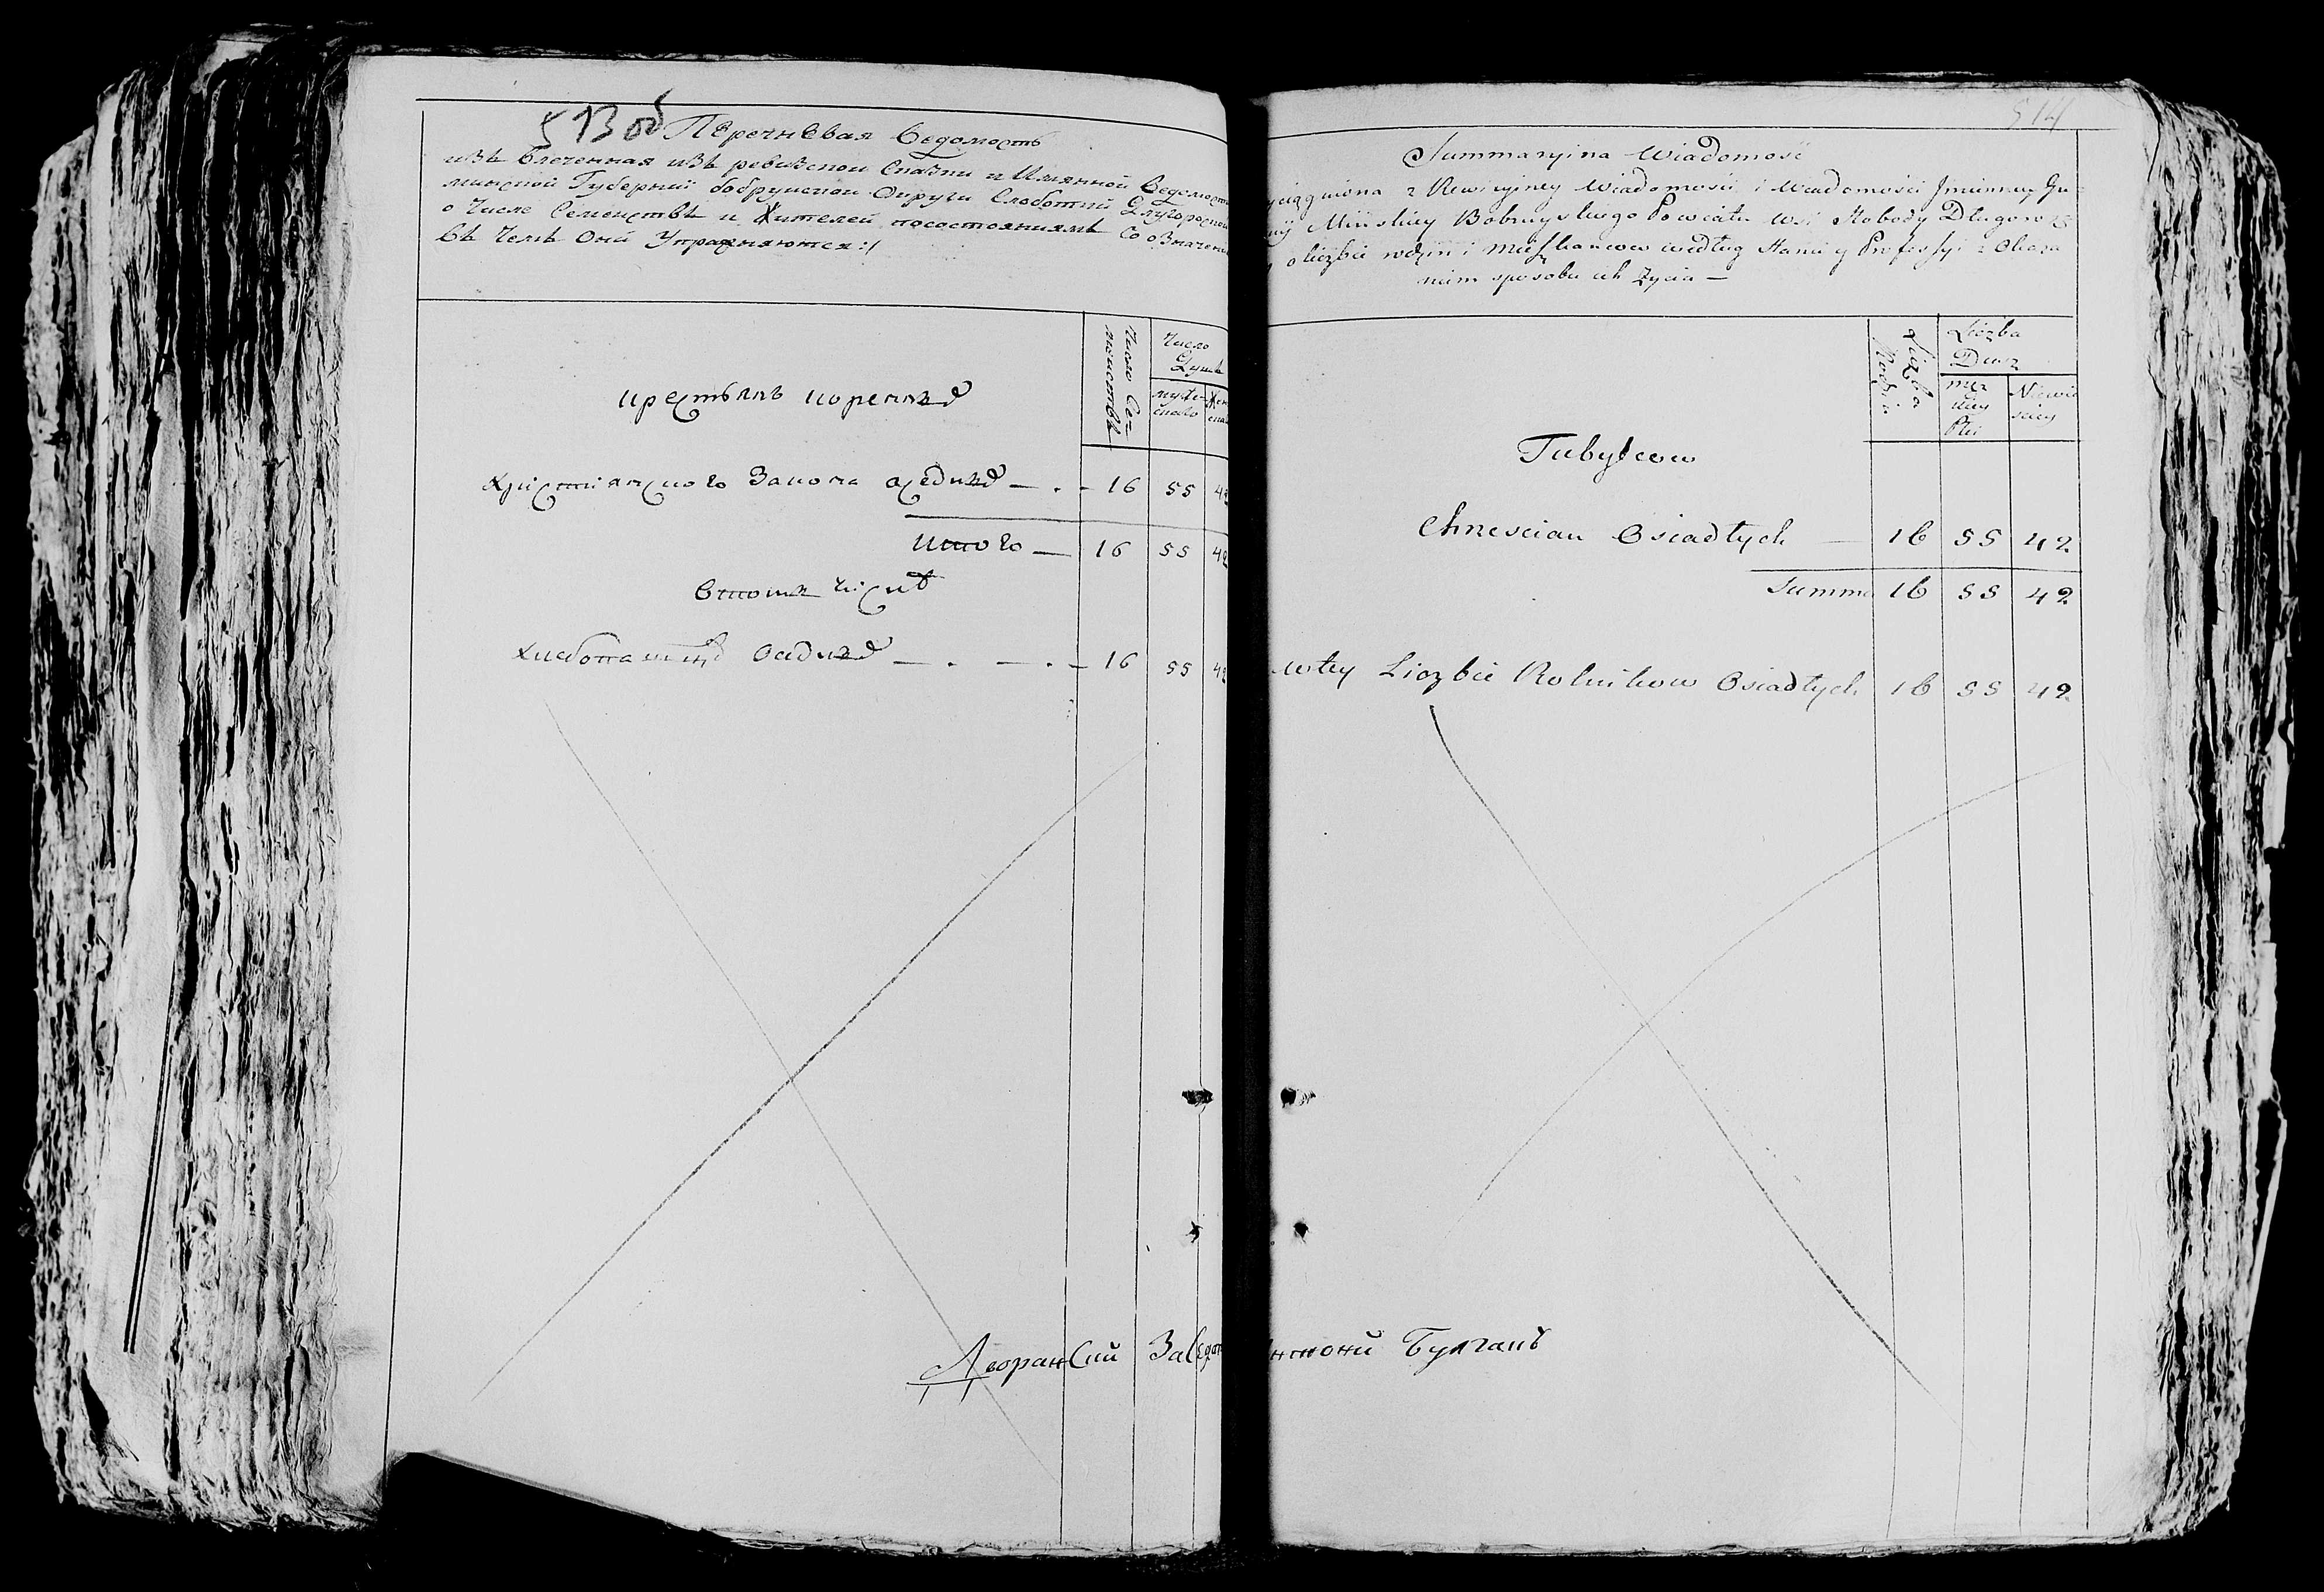 513 об
Перечневая Ведомость
изъ влеченная изъ ревизской Сказки и Имянной Ведомости
минской Губернии бобруйской Округи Слоботки Длугоросной
о Числе Семействъ и Жителей посостояниямъ Со означени
въ Чемъ Они Упражняются:/
Число Се-
мействъ
Число
Душъ
муже-
скаго
Жен
ска
крестьянъ коренныхъ
Християнскаго Закона оседлыхъ — . - 16 55 42
Итого — 16 55 42
Втомъ числѣ
хлебопашцовъ Оседлыхъ — . — . - 16 55 42
Дворанский Засед
514
Summaryina Wiadomość
yciągniona z Rewizyiney Wiadomosci i Wiadomości Jmienney Gu
nij Mińskiey Bobruyskiego Powiatu Wsi Słobody Długoro
o liczbie rodzin i Mieszkancow według Stanu y Professyi z Okaza
niem sposobu ich Życia —
Liczba
Rodzin
Liczba
Dusz
męz
kiey
Płci
Niewie
sciey
Tubylcow
Chrzescian Osiadłych — 16 55 42
Summa 16 55 42
wtey Liczbie Rolnikow Osiadłych 16 55 42
нтони Булгакъ